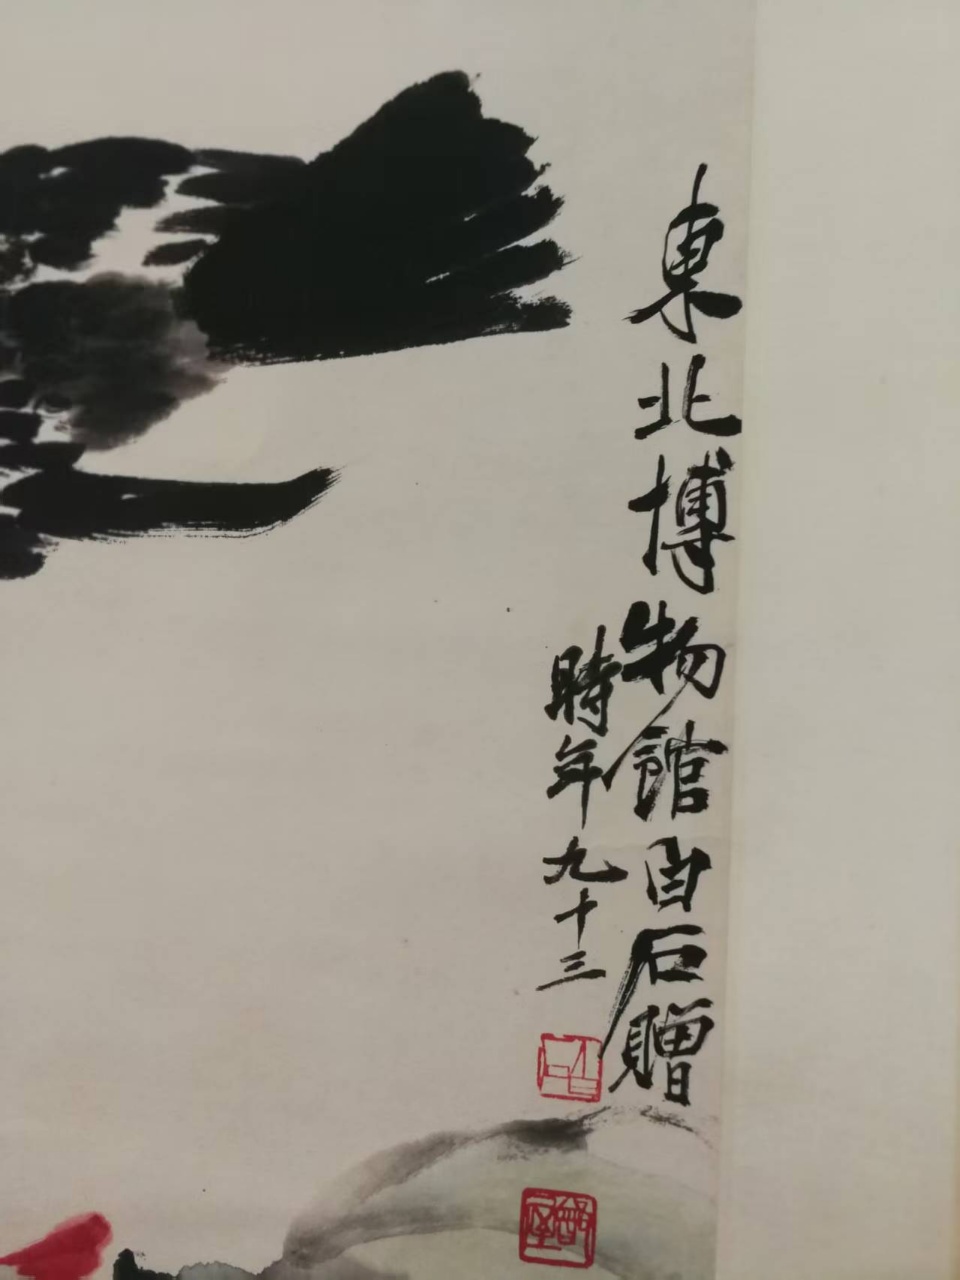 東北博物館白石贈
時年九十三